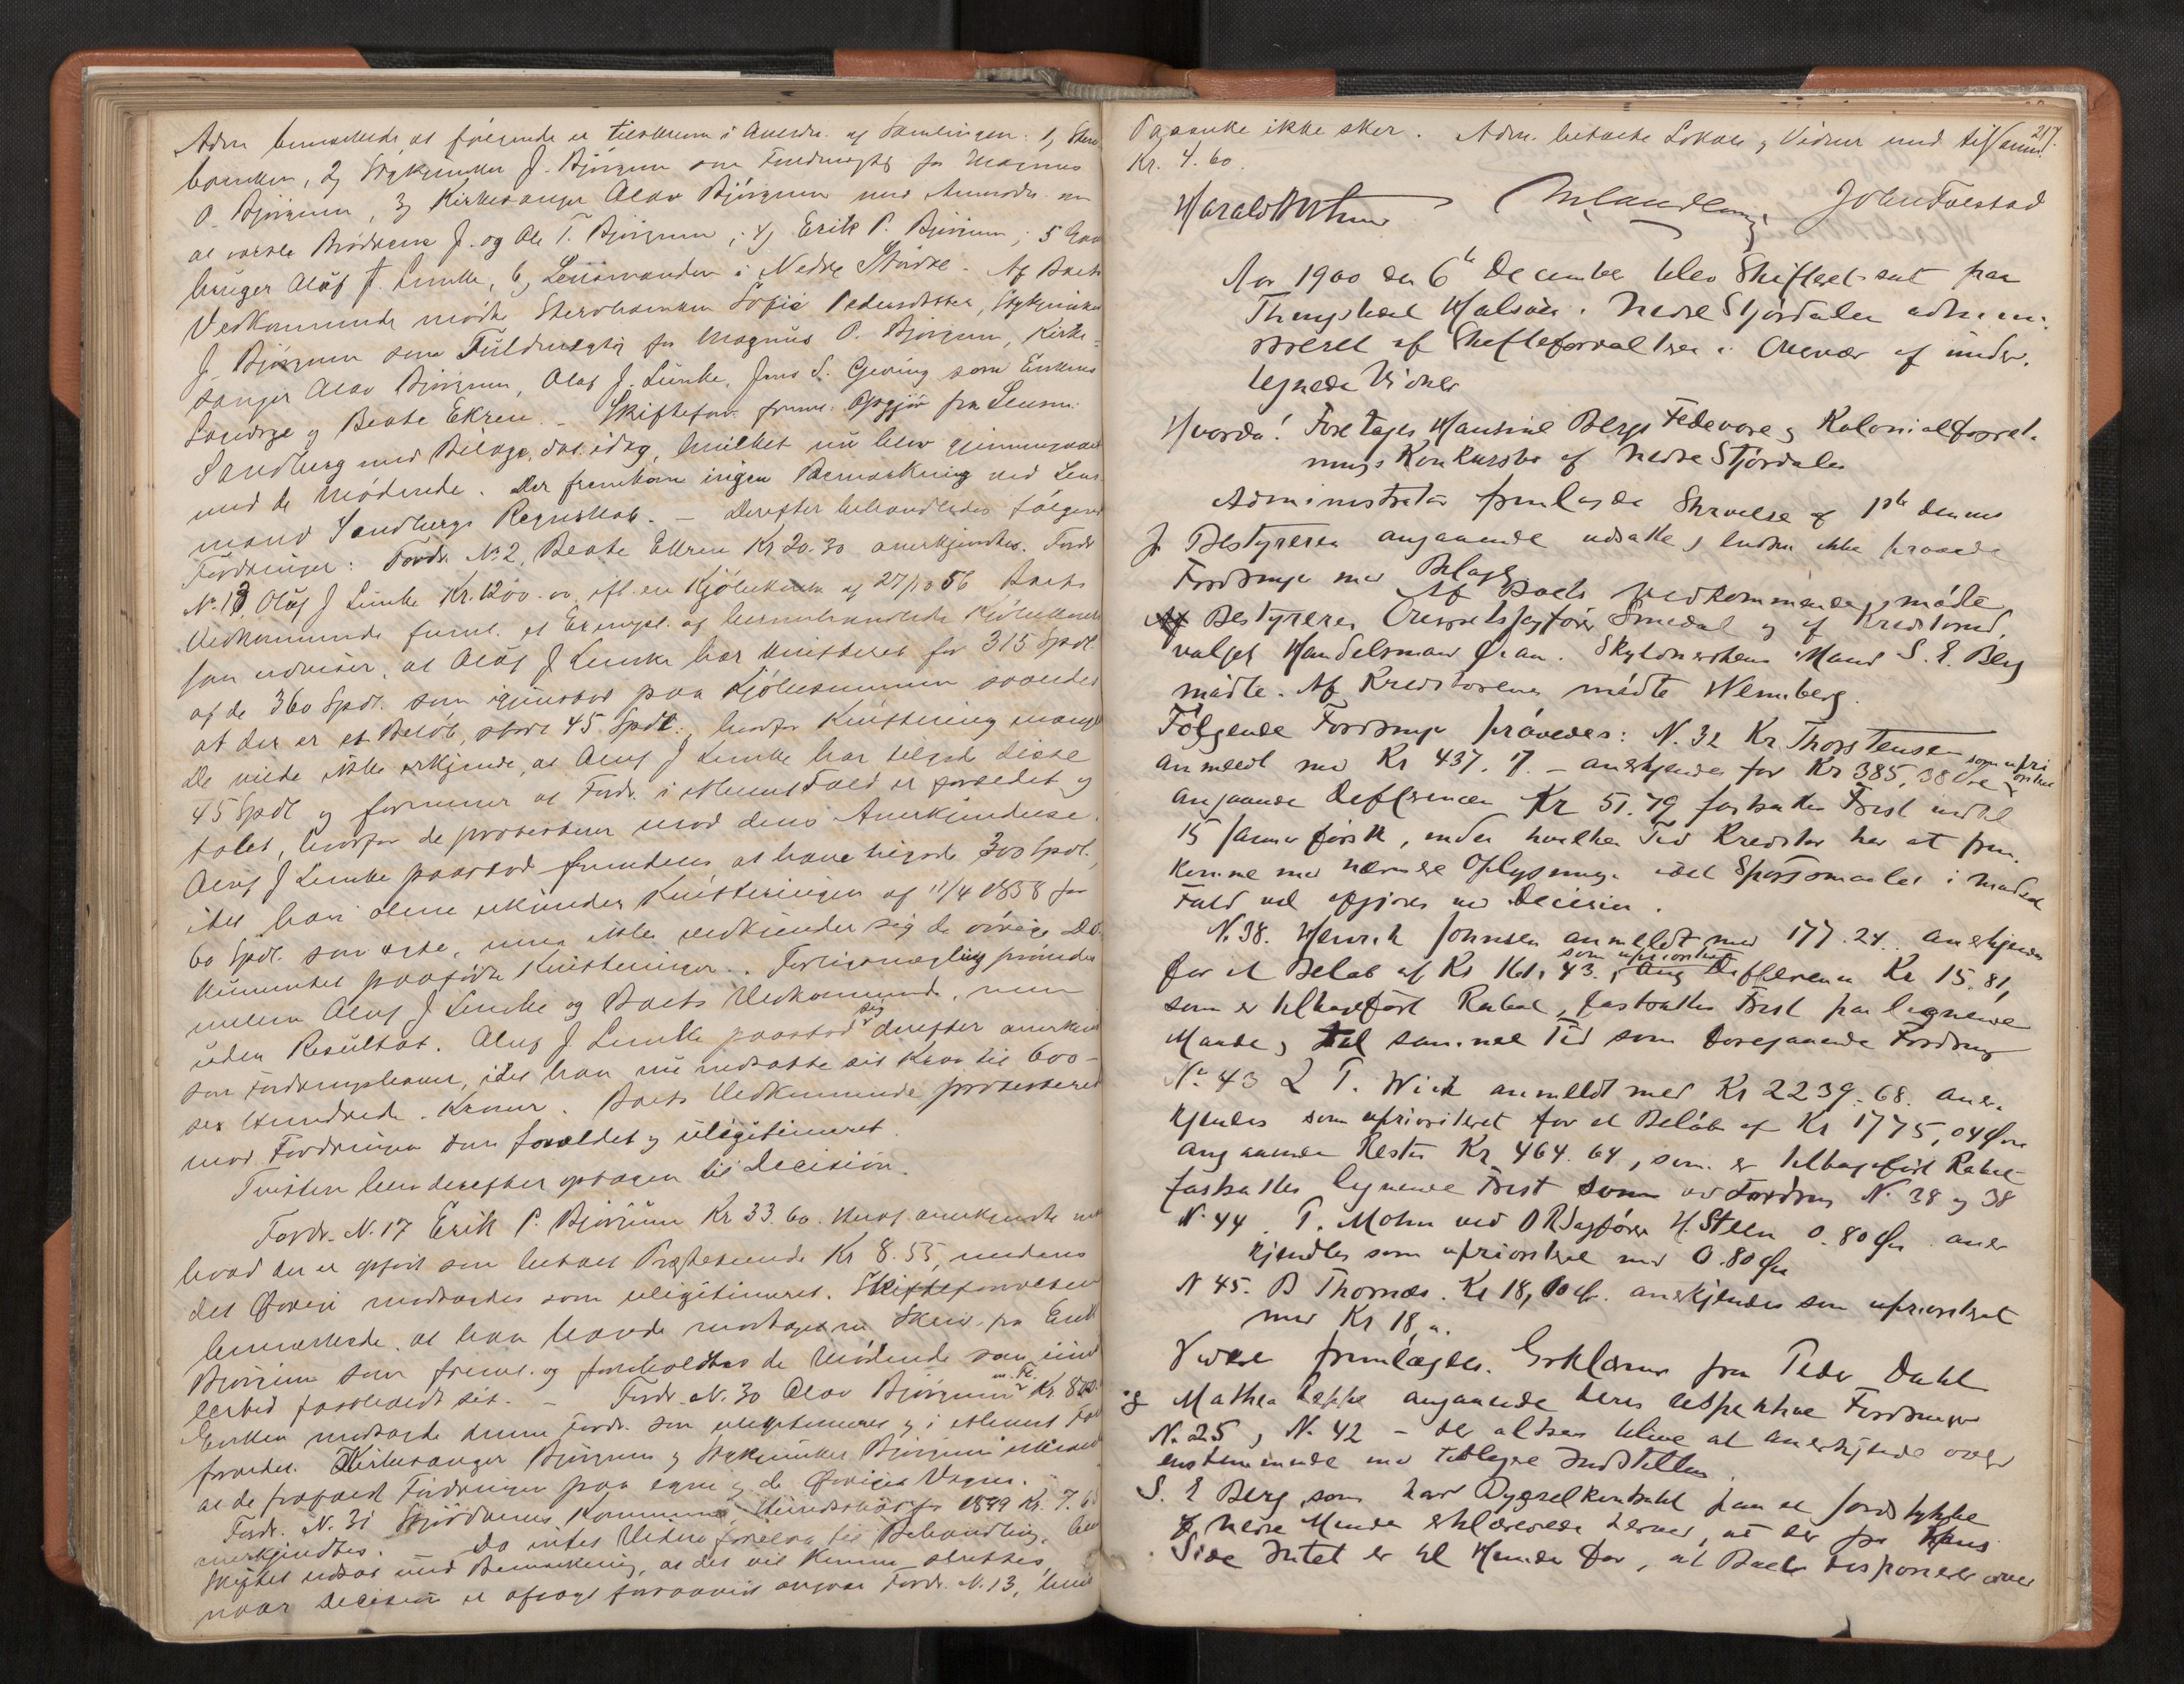 Adm bemærkede at følgende er tilstevnt i Anledn. af Samlingen: 1, Sterv
boenken, 2, Sygekjøreren J. Bjørgum som Fuldmægtig for Magnus
O. Bjørgum, 3, Kirkesanger Alav Bjørgum med Anmodn. om
at varsle Brødrene J. og Ole T. Bjørgum; 4, Erik P. Bjørgum; 5 Gaard
bruger Oluf J. Lunke, 6, Lensmanden i Nedre Stjørd. Af Boets
Vedkommende mødte Stervboenken Sofie Pedersdatter,
J. Bjørgum som Fuldmægtig for Magnus O. Bjørgum, Kirke=
sanger Alav Bjørgum, Oluf J. Lunke, Jens S. Geving som Enkens
Laugværge og Beate Ekren. _ Skifteforv. freml. Opgjør fra Lensm.
Sandberg med Bilage, dat. idag, hvilket nu blev gjennemgaaet
med de Mødende. Der fremkom ingen Bemærkning ved Lens
mand Sandbergs Regnskab. _ Derefter behandledes følgende
Fordringer: Fordr. No 2, Beate Ekren Kr 20.30 anerkjendtes. Fordr
No 13, Oluf J Lunke Kr. 1200.00 efl. en Kjøbekontr. af 27/10 56 Boets
Vedkommende freml. et Exempl. af heromhandlede Kjøbekontr
som udviser, at Oluf J Lunke har kvitteret for 315 Spdl.
af de 360 Spdl. som igjenstod paa Kjøbesummen saaledes
at der er et Beløb, stort 45 Spdl:, hvorfor Kvittering mangl
De vilde ikke erkjende, at Oluf J Lunke har tilgode disse
45 Spdl og formener at Fordr. i ethvert Fald er forældet og
talet, hvorfor de protesterer mod dens Anerkjendelse.
Oluf J Lunke paastod fremdeles at have tilgode 300 Spdl.,
idet han alene erkjender Kvitteringen af 11/4 1858 for
60 Spdl. som ægte, men ikke vedkjender sig de øvrige Do
kumentet paaførte Kvitteringer. Forligsmægling prøvedes
mellem Oluf J Lunke og Boets Vedkommende, men
uden Resultat. Oluf J. Lunke paastod sig derefter anerkjendt
som Fordringshaver, idet han nu nedsatte sit Krav til 600 -
sex Hundrede - Kroner. Boets Vedkommende protesterede
mod Fordringen som forældet og ulegitimeret.
Tvisten blev derefter optagen til Decision.
Fordr. N. 17 Erik P. Bjørgum Kr 33.60. Heraf anerkjendte
hvad der er opført som betalt Præstesunde Kr 8.55, medens
det Øvrige modsagdes som ulegitimeret. Skifteforvalteren
bemærkede, at han havde modtaget en Skriv. fra Erik
Bjørgum som freml. og foreholdtes de Mødende som imid
lertid fastholdt sit. _ Fordr. N. 30 Alav Bjørgum m. Fl. Kr 8
Enken modsagde denne Fordr. som ulegitimeret og i ethvert Fald
forældet. Kirkesanger Bjørgum og Bjørgum erklærede
at de frafaldt Fordringen paa egne og de Øvriges Vegne.
Fordr. N. 31 Stjørdalens Kommune, Hundeskat for 1899 Kr. 7.6
anerkjendtes. Da intet Videre forelaa til Behandling, blev
Skiftet udsat med Bemærkning, at det vil kunne sluttes,
naar Decision er afsagt forsaavidt angaar Fordr. N. 13, hvis

217.
Paaanke ikke sker. Adm. betalte Lokale og Vidner med tilsamm.
Kr. 4.60.
John Folstad
Aar 1900 den 6te December blev Skifteret sat paa
Thinghuset Halsøen i Nedre Stjørdalen admini-
streret af Skifteforvalteren i Overvær af under-
tegnede Vidner
Hvorda! Foretages Hansine Bergs Fedevare og Kolonialforret-
nings Konkursbo af Nedre Stjørdalen
Administrator fremlagde Skrivelse af 1ste dennes
fr Bestyreren angaaende udsatte, endnu ikke prøvede
Fordringer med Bilage.
Af Boets Vedkommende, mødte
Bestyreren Overretssagfører Smedal og af Kreditorud-
valget Handelsmand Øian. Skyldnerskens Mand S. E. Berg
mødte. Af Kreditorerne mødte Wennberg.
Følgende Fordringer prøvedes: N. 32 Kr. Thorstensen
anmeldt med Kr 437.17. _ anerkjendes for Kr 385,38 Øre som uprioritret
angaaende Defferencen Kr 51.79 fastsattes Frist indtil
15 Januar førstk, inden hvilken Tid Kreditor har at frem-
komme med nærmere Oplysninger idet Spørsmaalet i modsat
Fald vil afgjøres ved Decision.
N. 38. Henrik Johnsen anmeldt med 177.24. anerkjendes
for et Beløb af Kr 161,43. som uprioritret, Ang Defference Kr 15.81,
som er tilbageført Rabat, fastsattes Frist paa lignende
Maade, til samme Tid som foregaaende Fordring
No 43 L T. Wick anmeldt med Kr 2239.68. aner-
kjendes som uprioriteret for et Beløb af Kr 1775,04 Øre
angaaende Resten Kr. 464.64, som er tilbageført Rabat
fastsattes lignende Frist som ved Fordring N. 38 og 38
N. 44. T. Mohn ved ORSagfører H. Steen 0.80 Øre. aner
kjendtes som uprioritret med 0.80 Øre
N 45. B Thornæs. Kr 18,00 Øre. anerkjendes som uprioritret
med Kr 18,
Videre fremlagdes. Erklæring fra Peder Dahl
og Mathea angaaende deres respektive Fordringer
N. 25, N. 42 - der altsaa bliver at anerkjende over
ensstemmende med tidligere Indstilling.
S. E Berg, som har Dyrselkontrakt paa et Jordstykke
af Nedre Mænde erklærerede herved, at der fra Hans
Side Intet er til Hinder for, at Boet disponerer over